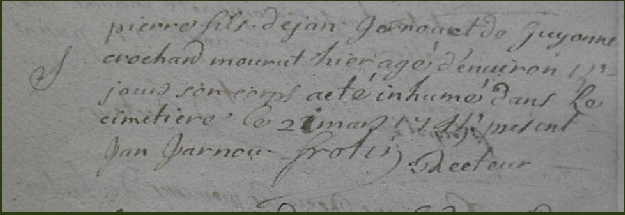 pierre fils de jan Jarnouet de Guyonne
S crochard mourut hier agé d'enuiron
jours son corps a eté inhumé dans le
cimetiere le 21 mars present
Jan Jarnou frotin Recteur